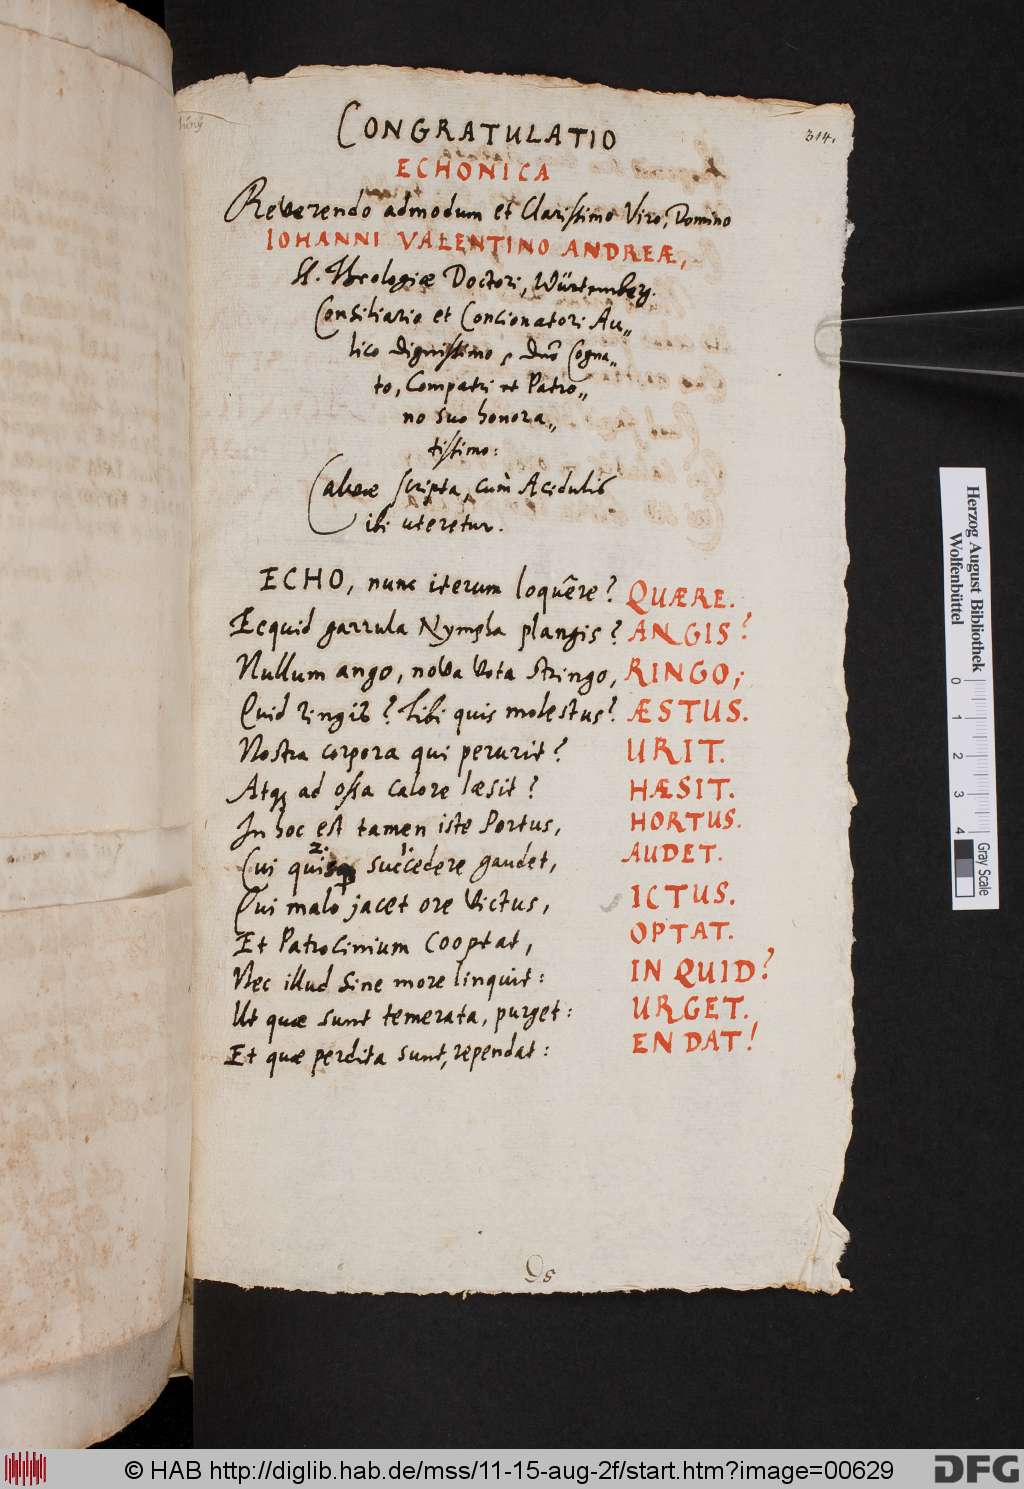 314.
CONGRATULATIO
ECHONICA
Reverendo admodum et Clarissimo Viro, Domino
IOHANNI VALENTINO ANDREÆ,
SS. Theologiæ Doctori, Würtemberg.
Consiliario et Concionatori Au„
lico dignissimo, Dnō Cogna„
to, Compatri et Patro„
no suo honora„
tissimo:
Calvæ scripta, cum Acidulis
ibi uteretur.
ECHO, nunc iterum loquêre? QUÆRE.
Ecquid garrula Nympha plangis? ANGIS?
Nullum ango, nova vota stringo, RINGO;
Quid ringis? Tibi quis molestus? ÆSTUS.
Nostra corpora qui perurit? URIT.
Atq; ad ossa calore læsit? HÆSIT.
In hoc est tamen iste Portus, HORTUS.
Cui quisq; succedere gaudet, AUDET.
Qui malo jacet ore victus, ICTUS.
Et Patrocinium cooptat, OPTAT.
Nec illud sine more linquit: IN QUID?
Ut quæ sunt temerata, purget: URGET.
Et quæ perdita sunt, rependat: EN DAT!
Ds
Herzog August Bibliothek
Wolfenbüttel
0 1 2 3 4
Gray Scale
© HAB http://diglib.hab.de/mss/11-15-aug-2f/start.htm?image=00629
DFG